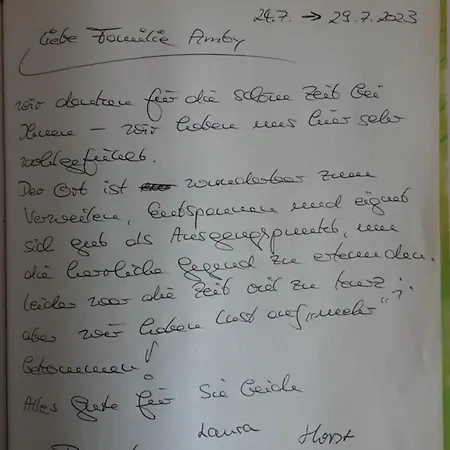 24.7. → 29.7.2023
Liebe Familie Amby
wir danken für die schöne Zeit bei
Ihnen – wir haben uns hier sehr
wohlgefühlt.
Der Ort ist wunderbar zum
Verweilen, Entspannen und eignet
sich gut als Ausgangspunkt, um
die herrliche Gegend zu erkunden.
Leider war die Zeit viel zu kurz;
aber wir haben Lust auf „mehr“
bekommen!
Alles gute für Sie beide
Laura Horst